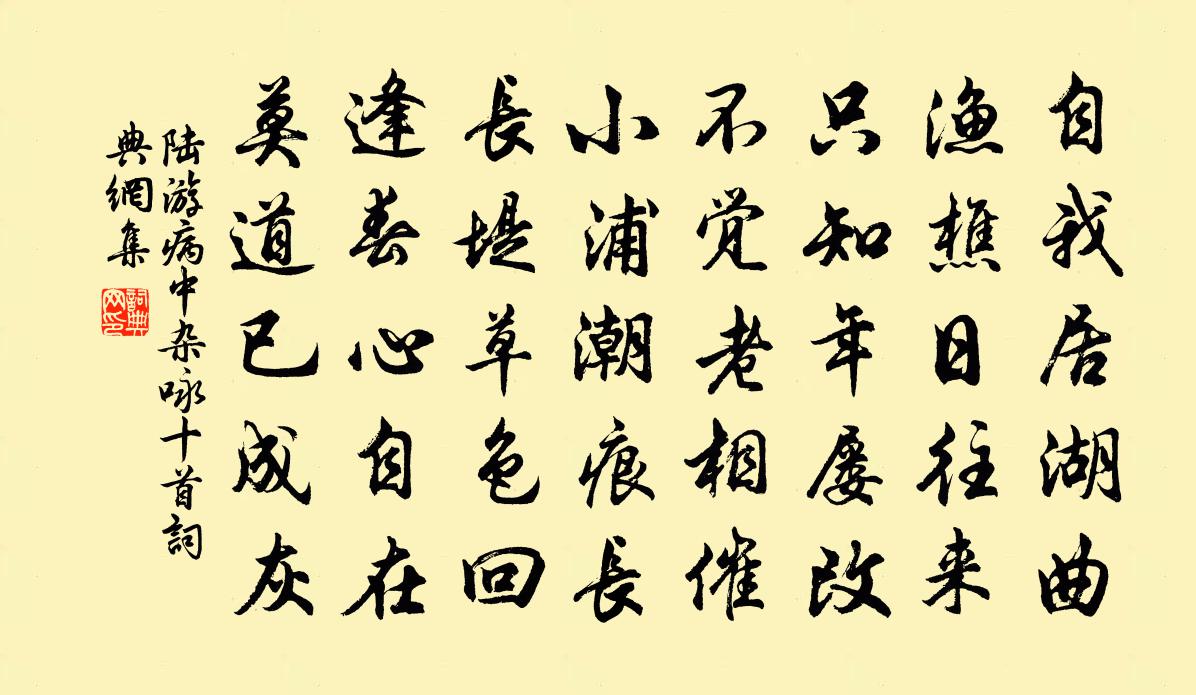 自我居湖曲
漁樵日往来
只知年屡改
不覚老相催
小浦潮痕長
長堤草色回
逢春心自在
莫道已成灰
陆游病中杂咏十首詞
典網集
詞典网印